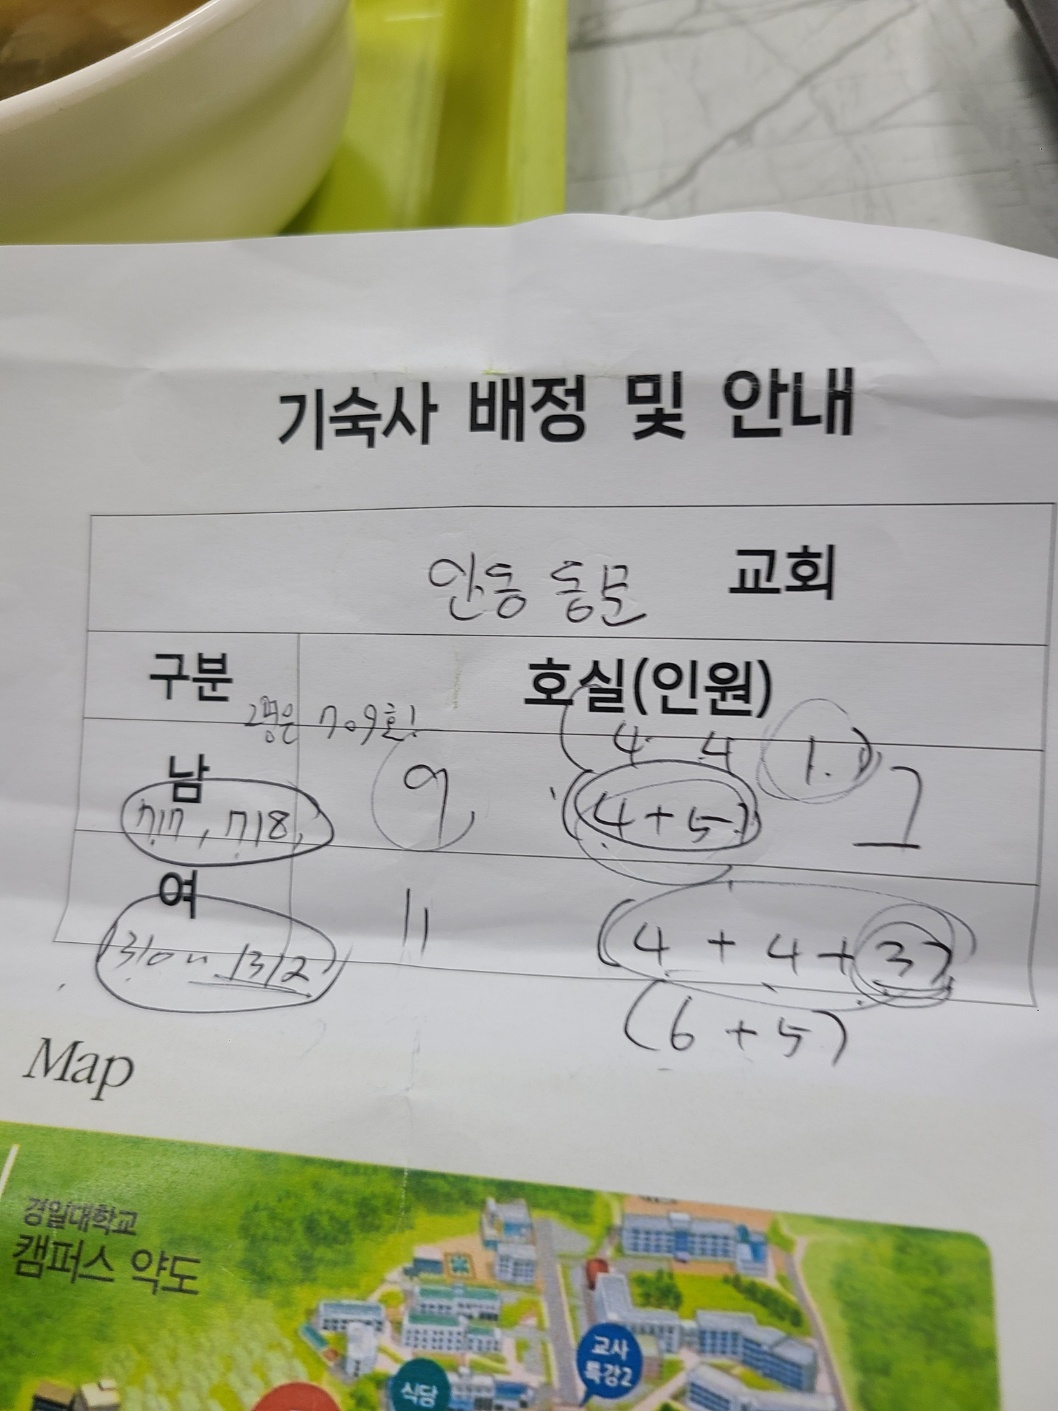 기숙사 배정 및 안내
안동 동문 교회
구분 호실(인원)
2명은 709호!
(4 4 1.)
남 9, (4+5)
717, 718,
여 11 (4+4+3)
1310~1312
(6+5)
Map
경일대학교
캠퍼스 약도
교사
특강2
식당